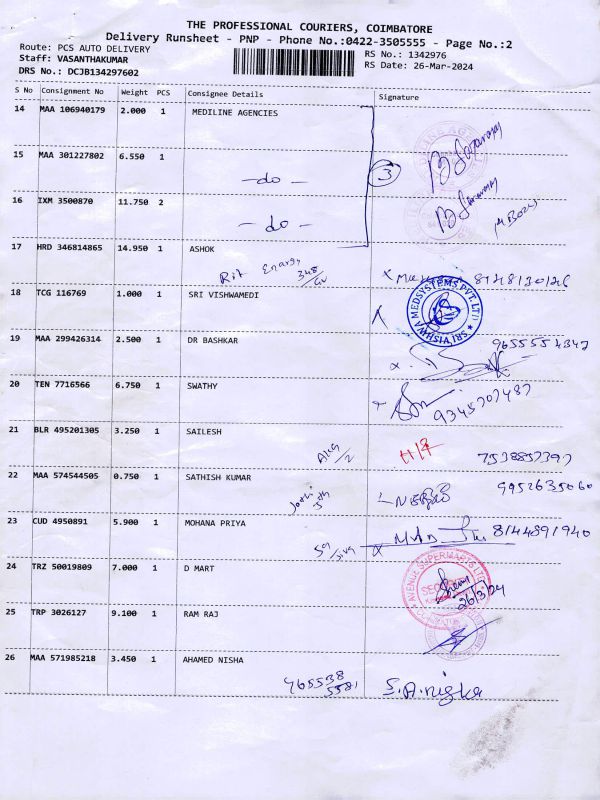 THE PROFESSIONAL COURIERS, COIMBATORE
Delivery Runsheet - PNP - Phone No.:0422-3505555 - Page No.:2
Route: PCS AUTO DELIVERY
RS No.: 1342976
Staff: VASANTHAKUMAR
RS Date: 26-Mar-2024
DRS No.: DCJB134297602
S No Consignment No Weight PCS Consignee Details Signature
14 MAA 106940179 2.000 1 MEDILINE AGENCIES
15 MAA 301227802 6.550 1
- do -
3
16 IXM 3500870 11.750 2
- do -
17 HRD 346814865 14.950 1 ASHOK
Energy
18 TCG 116769 1.000 1 SRI VISHWAMEDI
SRI VISHWA MEDSYSTEMS PVT. LTD
19 MAA 299426314 2.500 1 DR BASHKAR
9655554342
20 TEN 7716566 6.750 1 SWATHY
9345707487
21 BLR 495201305 3.250 1 SAILESH
7538857397
22 MAA 574544505 0.750 1 SATHISH KUMAR
9952635060
23 CUD 4950891 5.900 1 MOHANA PRIYA
8144891940
24 TRZ 50019809 7.000 1 D MART
AVENUE SUPERMARTS LTD
26/3/24
25 TRP 3026127 9.100 1 RAM RAJ
26 MAA 571985218 3.450 1 AHAMED NISHA
965538
5581
S.A.nisha